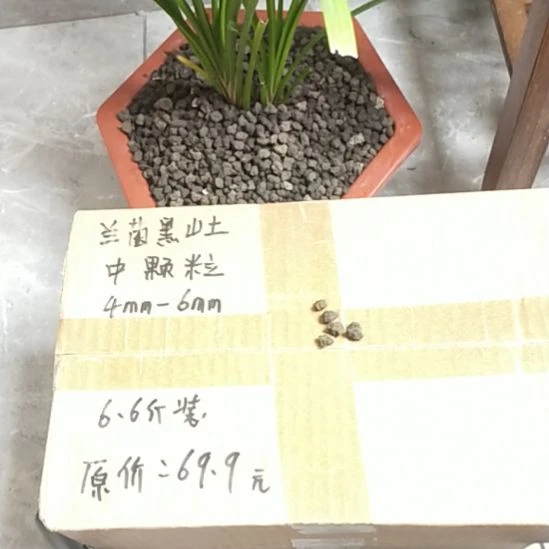 兰菌黑山土
中颗粒
4mm-6mm
6.6斤装.
原价:69.9元